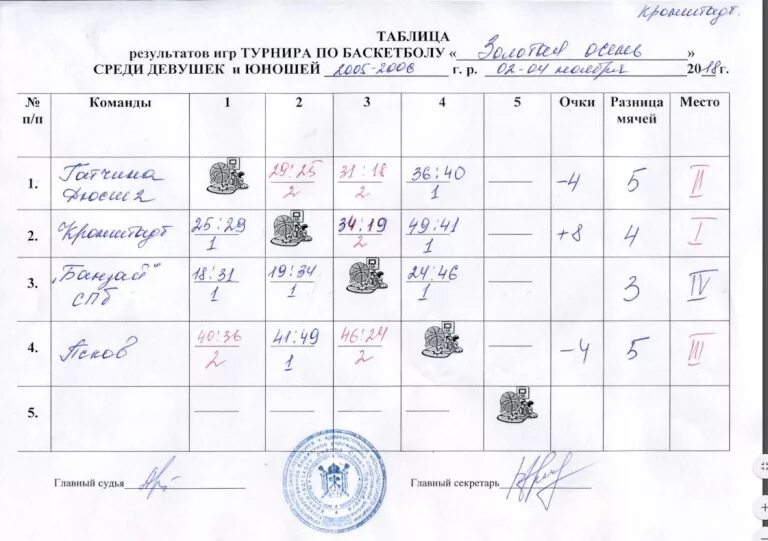 Кронштадт.
ТАБЛИЦА
результатов игр ТУРНИРА ПО БАСКЕТБОЛУ « Золотая осень »
СРЕДИ ДЕВУШЕК и ЮНОШЕЙ 2005-2006 г. р. 02-04 ноября 2018г.
№ п/п Команды 1 2 3 4 5 Очки Разница мячей Место
1. Гатчина ДЮСШ 2 29:25 2 31:18 2 36:40 1 -4 5 II
2. Кронштадт 25:29 1 34:19 2 49:41 1 +8 4 I
3. "Банзай" СПб 18:31 1 19:34 1 24:46 1 3 IV
4. Псков 40:36 2 41:49 1 46:24 2 -4 5 III
5.
Главный судья Главный секретарь